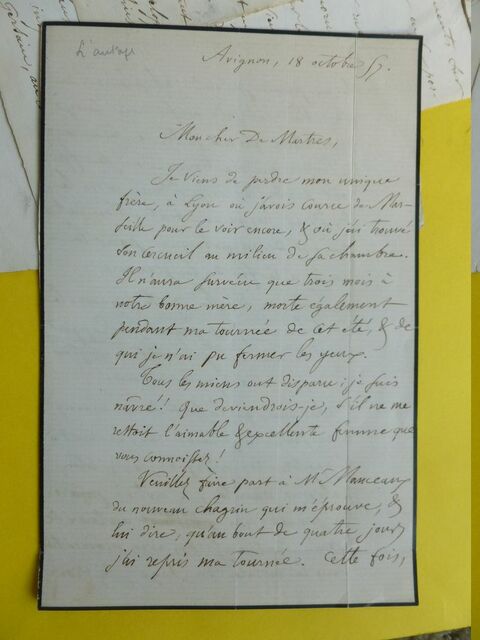 Avignon, 18 octobre 57.
Mon cher De Martres,
Je viens de perdre mon unique
frère, à Lyon où j'avois couru de Mar-
seille pour le voir encore, & où j'ai trouvé
son cercueil au milieu de sa chambre.
Il n'aura survécu que trois mois à
notre bonne mère, morte également
pendant ma tournée de cet été, & de
qui je n'ai pu fermer les yeux.
Tous les miens ont disparu; je suis
nâvré! Que deviendrois-je, s'il ne me
restoit l'aimable & excellente femme que
vous connoissez!
Veuillez faire part à Mr Manceaux
du nouveau chagrin qui m'éprouve, &
lui dire, qu'au bout de quatre jours
j'ai repris ma tournée. Cette fois,